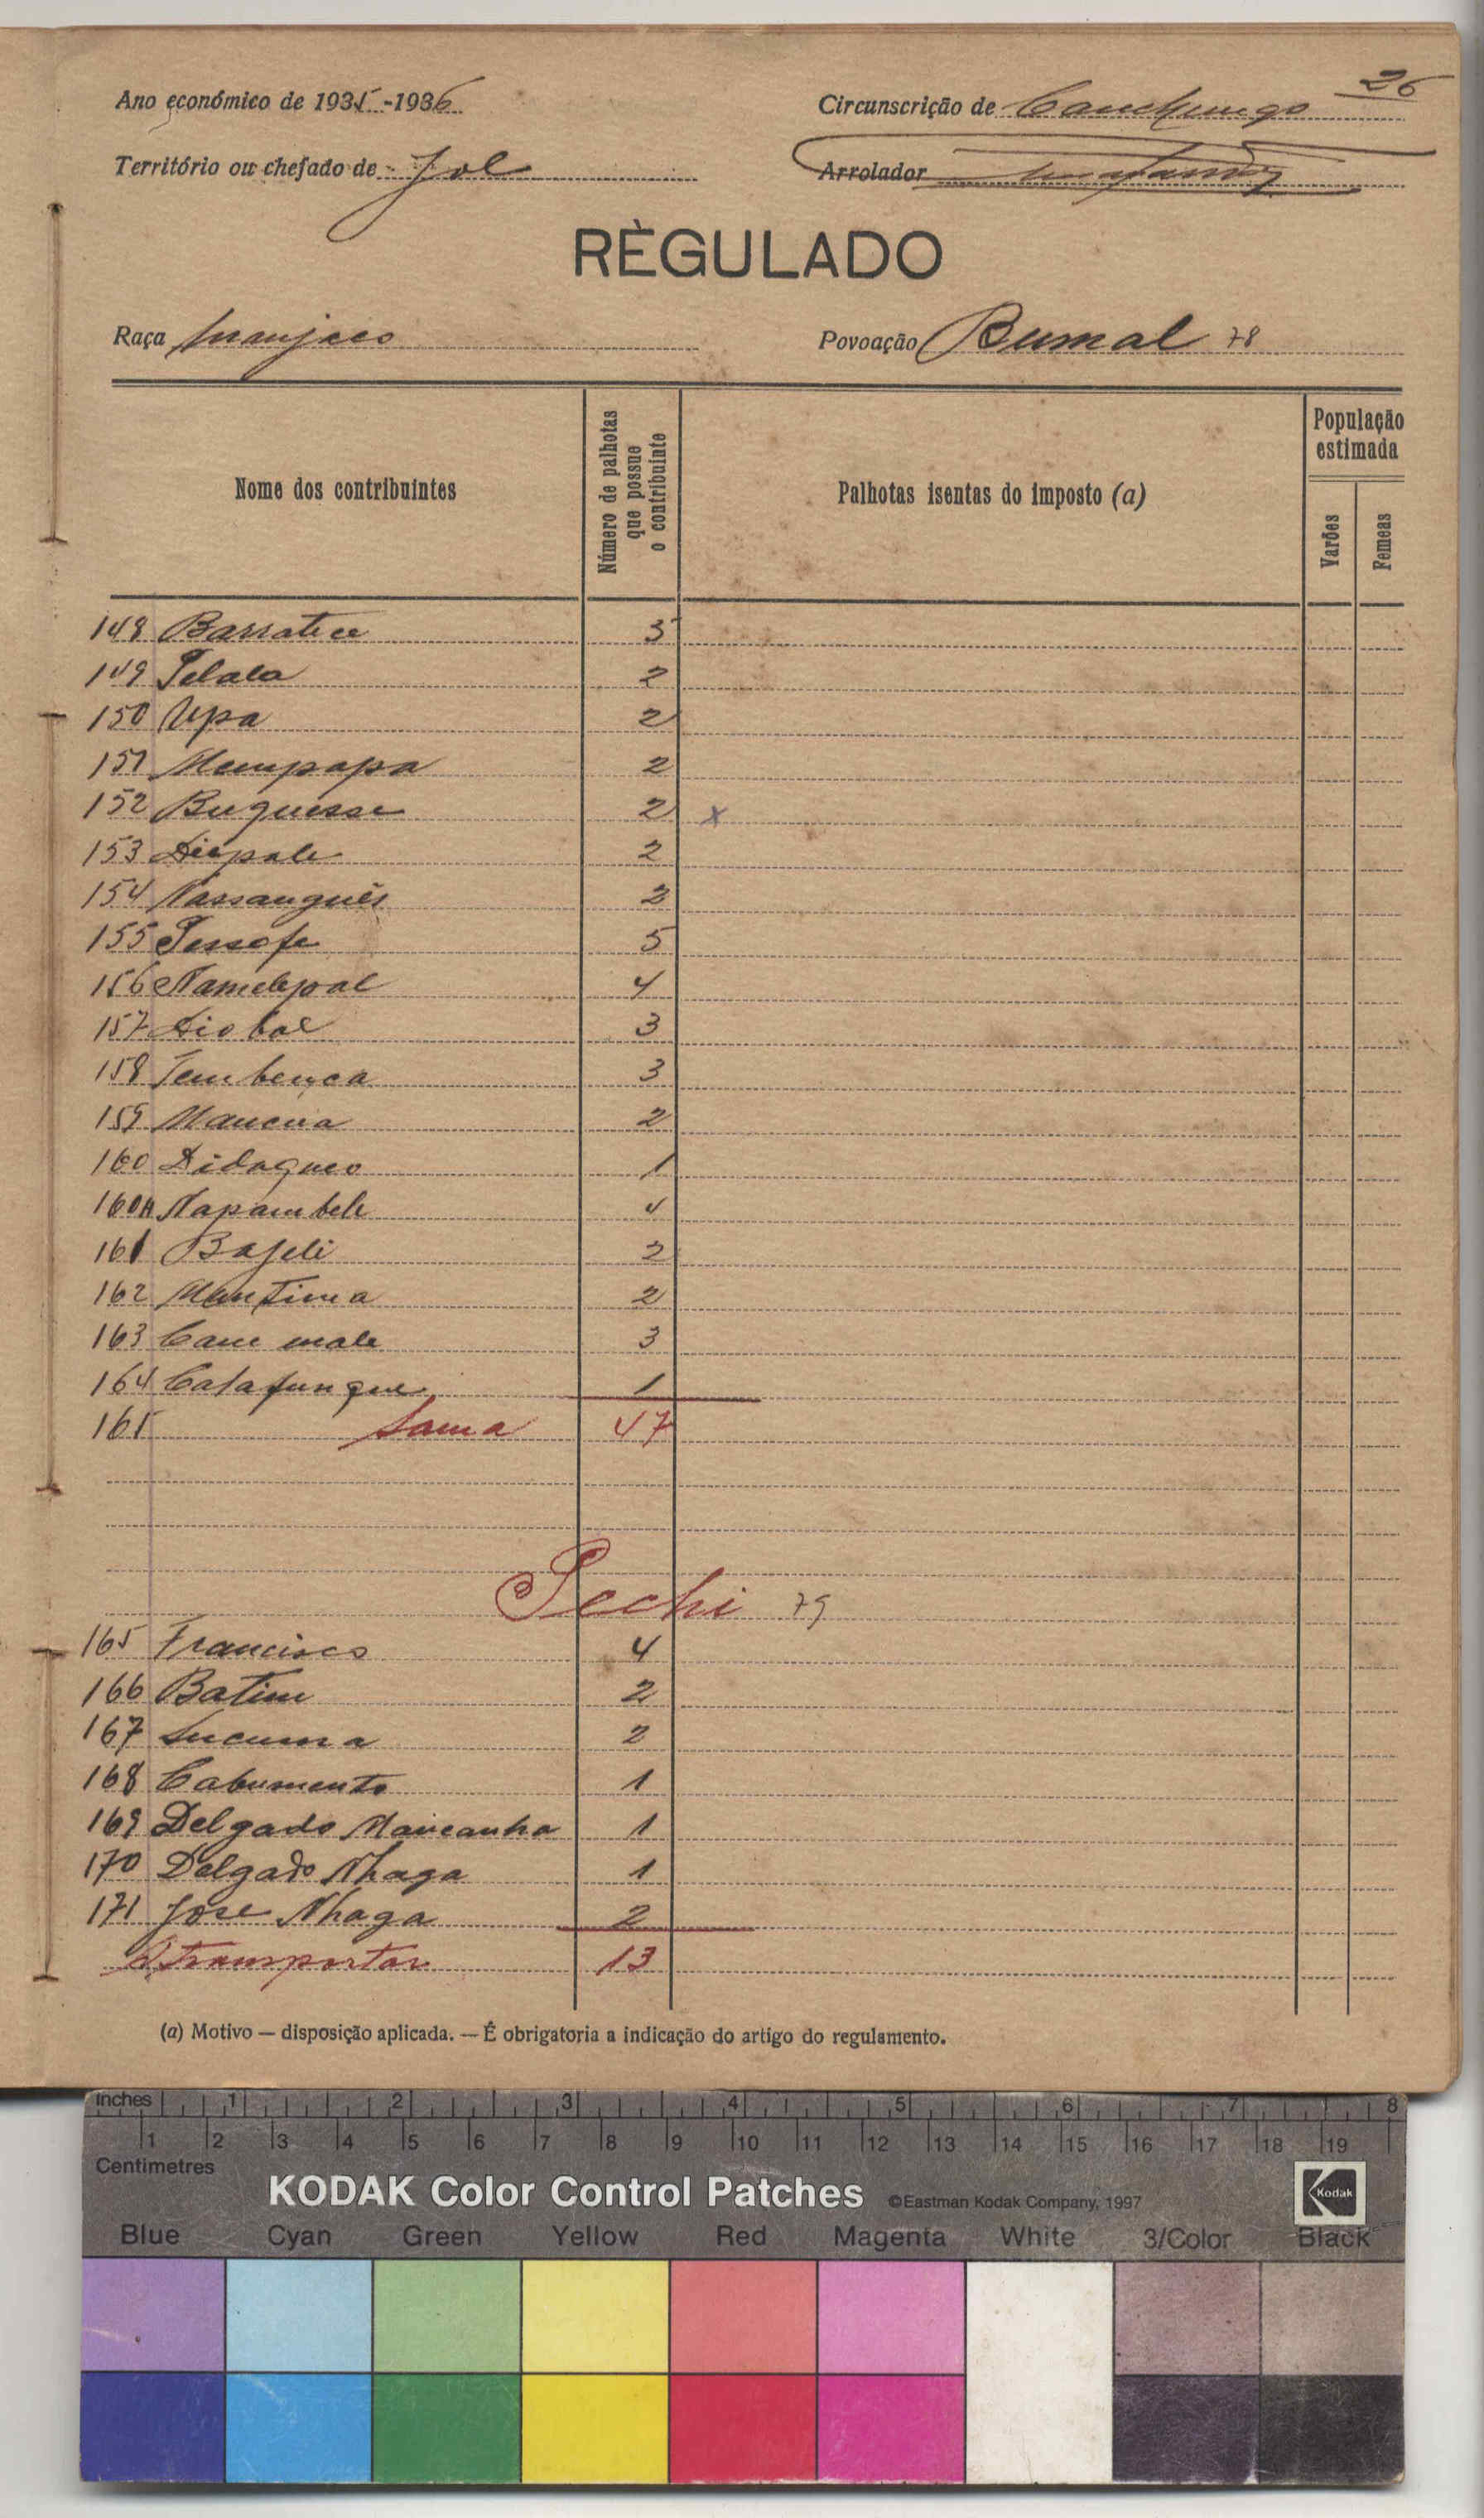 26
Ano económico de 1935-1936 Circunscrição de Canchungo
Território ou chefado de Jol Arrolador
RÈGULADO
Raça manjaco Povoação Bumal 78
Nome dos contribuintes
Número de palhotas que possue o contribuinte
Palhotas isentas do imposto (a)
População estimada
Varões Femeas
148 Barratece 3
149 Pelala 2
150 Upa 2
151 Mempapa 2
152 Buguesse 2 x
153 Diepale 2
154 Nassanguês 2
155 Pessofe 5
156 Namelepal 4
157 Diobal 3
158 Tembença 3
159 Mancua 2
160 Didagueo 1
160A Napambele 4
161 Bajeli 2
162 Mantima 2
163 Cam male 3
164 Catafunque 1
165 Soma 47
Pechi 79
165 Francisco 4
166 Batim 2
167 Lucuma 2
168 Cabumento 1
169 Delgado Mancanha 1
170 Delgado Nhaga 1
171 Jose Nhaga 2
A transportar 13
(a) Motivo — disposição aplicada. — É obrigatoria a indicação do artigo do regulamento.
Inches 1 2 3 4 5 6 7 8
1 2 3 4 5 6 7 8 9 10 11 12 13 14 15 16 17 18 19
Centimetres
KODAK Color Control Patches ©Eastman Kodak Company, 1997 Kodak
Blue Cyan Green Yellow Red Magenta White 3/Color Black